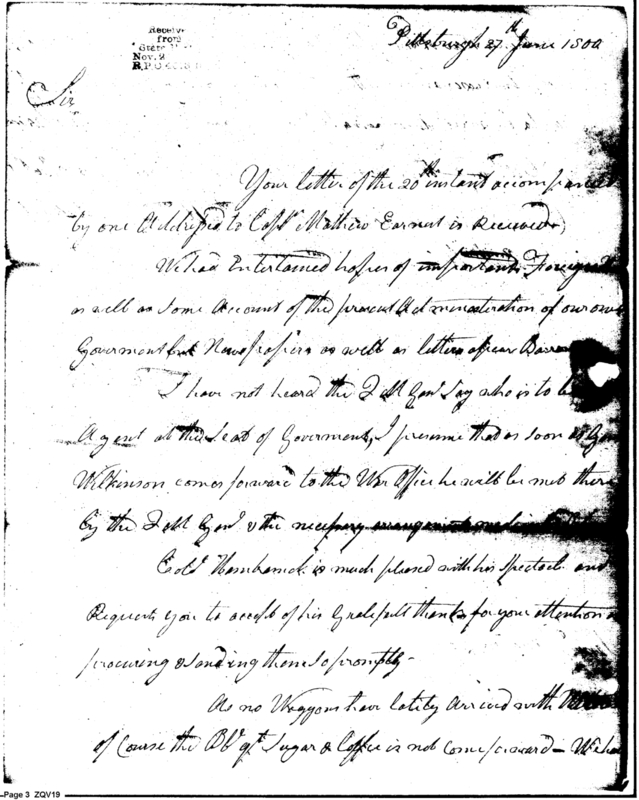 Receive
from
State
Nov. 2
R.P.O
Pittsburgh 27th June 1800
Sir
Your letter of the 20th instant accompanied
by one Addressed to Capt. Mathew Earnest is Received,
We had Entertained hopes of important Foreign
as well as some Account of the present Administeration of our own
Goverment but Newspapers as well as letters apear Barren
I have not heard the Q M Genl. Say who is to be
Agent at the Seat of Goverment, I presume that as soon as Genl
Wilkinson comes forward to the War Office he will be met there
by the Q M Genl. & the necessary arrangements made
Colo. Hambranck is much pleased with his Spectacls and
Requests you to accept of his Gratefull thanks for your attention in
procuring & sending them so promptly -
As no Waggons have lately arrived with
of Course the Bbl. qt. Sugar & Coffee is not come forward - We have
Page 3 ZQV19